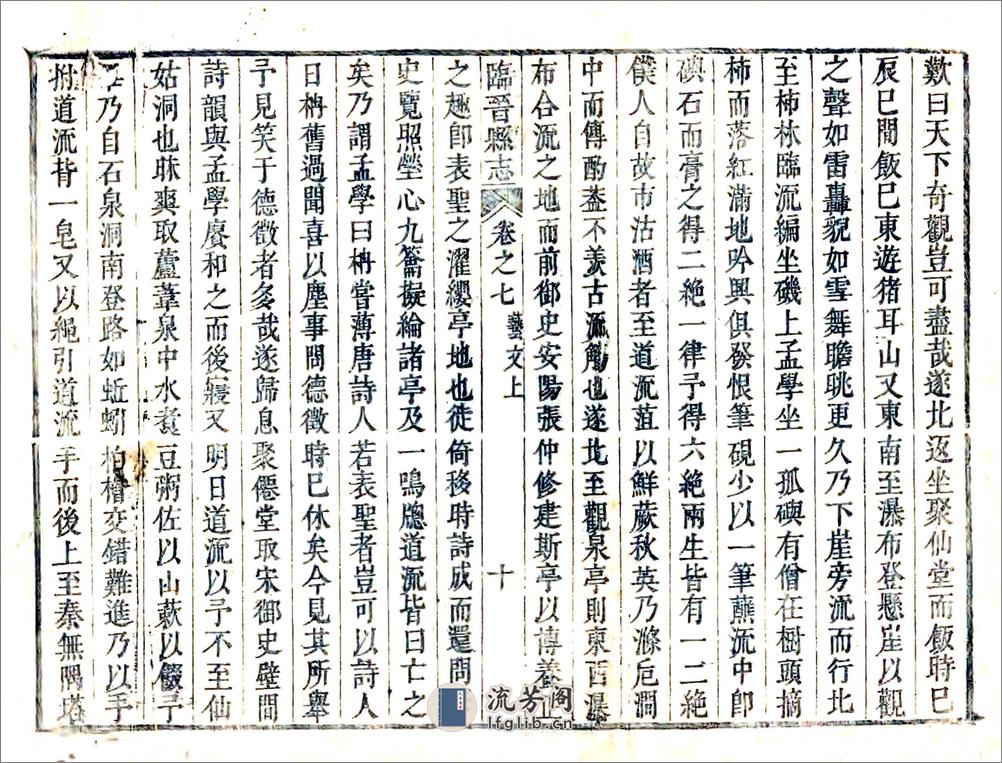 歎曰天下奇觀豈可盡哉遂北返坐聚仙堂而飯時巳
辰巳間飯巳東遊猪耳山又東南至瀑布登懸崖以觀
之聲如雷轟貌如雪舞瞻眺更久乃下崖旁流而行北
至柿林臨流編坐磯上孟學坐一孤礖有僧在樹頭摘
柿而落紅滿地吟興俱發恨筆硯少以一筆蘸流中卽
礖石而膏之得二絕一律予得六絕兩生皆有一二絕
僕人自故市沽酒者至道流菹以鮮蕨秋英乃滌巵澗
中而傳酌葢不羨古流觴也遂北至觀泉亭則東西瀑
布合流之地而前御史安陽張仲修建斯亭以博養
臨晉縣志 卷之七 藝文上 十
之趣卽表聖之濯纓亭地也徒倚移時詩成而還問
史覽照瑩心九籥擬綸諸亭及一鳴牕道流皆曰亡之
矣乃謂孟學曰柟嘗薄唐詩人若表聖者豈可以詩人
日柟舊過聞喜以塵事問德徵時巳休矣今見其所舉
予見笑于德徵者多哉遂歸息聚僊堂取宋御史壁間
詩韻與孟學賡和之而後寢又明日道流以予不至仙
姑洞也昧爽取蘆葦泉中水煮豆粥佐以山蔌以餟予
乃自石泉洞南登路如蚯蚓柏檜交錯難進乃以手
拊道流背一皂又以繩引道流手而後上至秦無隅塔
流芳阁
lfglib.cn